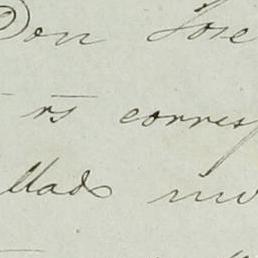 Don Jose
rs corres
llado mo